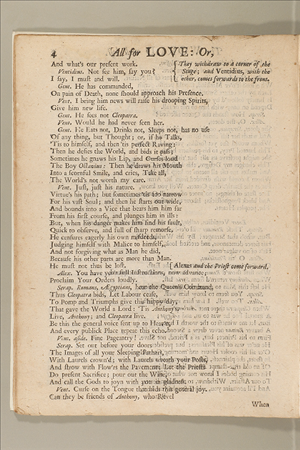 4 All for LOVE: Or,
And what's our present work. { They withdraw to a corner of the
Ventidius. Not see him, say you? { Stage; and Ventidius, with the
I say, I must and will. { other, comes forwards to the front.
Gent. He has commanded,
On pain of Death, none should approach his Presence.
Vent. I bring him news will raise his drooping Spirits,
Give him new life.
Gent. He sees not Cleopatra.
Vent. Would he had never seen her.
Gent. He Eats not, Drinks not, Sleeps not, has no use
Of any thing, but Thought; or, if he Talks,
'Tis to himself, and then 'tis perfect Raving:
Then he defies the World, and bids it pass;
Sometimes he gnaws his Lip, and Curses loud
The Boy Octavius: Then he draws his Mouth
Into a scornful Smile, and cries, Take all,
The World's not worth my care.
Vent. Just, just his nature.
Virtue's his path; but sometimes 'tis too narrow
For his vast Soul; and then he starts out wide,
And bounds into a Vice that bears him far
From his first course, and plunges him in ills:
But, when his danger makes him find his fault,
Quick to observe, and full of sharp remorse,
He censures eagerly his own misdeeds,
Judging himself with Malice to himself,
And not forgiving what as Man he did,
Because his other parts are more than Man.
He must not thus be lost. [Alexas and the Priest come forward.
Alex. You have your full Instructions, now advance;
Proclaim your Orders loudly.
Serap. Romans, Egyptians, hear the Queen's Command;
Thus Cleopatra bids, Let Labour cease,
To Pomp and Triumphs give this happy day,
That gave the World a Lord: 'Tis Anthony's.
Live, Anthony; and Cleopatra live.
Be this the general voice sent up to Heav'n,
And every publick Place repeat this echo.
Vent. aside. Fine Pageantry!
Serap. Set out before your doors
The Images of all your Sleeping Fathers,
With Laurels crown'd; with Laurels wreath your Posts,
And strow with Flow'rs the Pavement; Let the Priests
Do present Sacrifice; pour out the Wine,
And call the Gods to joyn with you in gladness.
Vent. Curse on the Tongue that bids this general joy.
Can they be friends of Anthony, who Revel
When